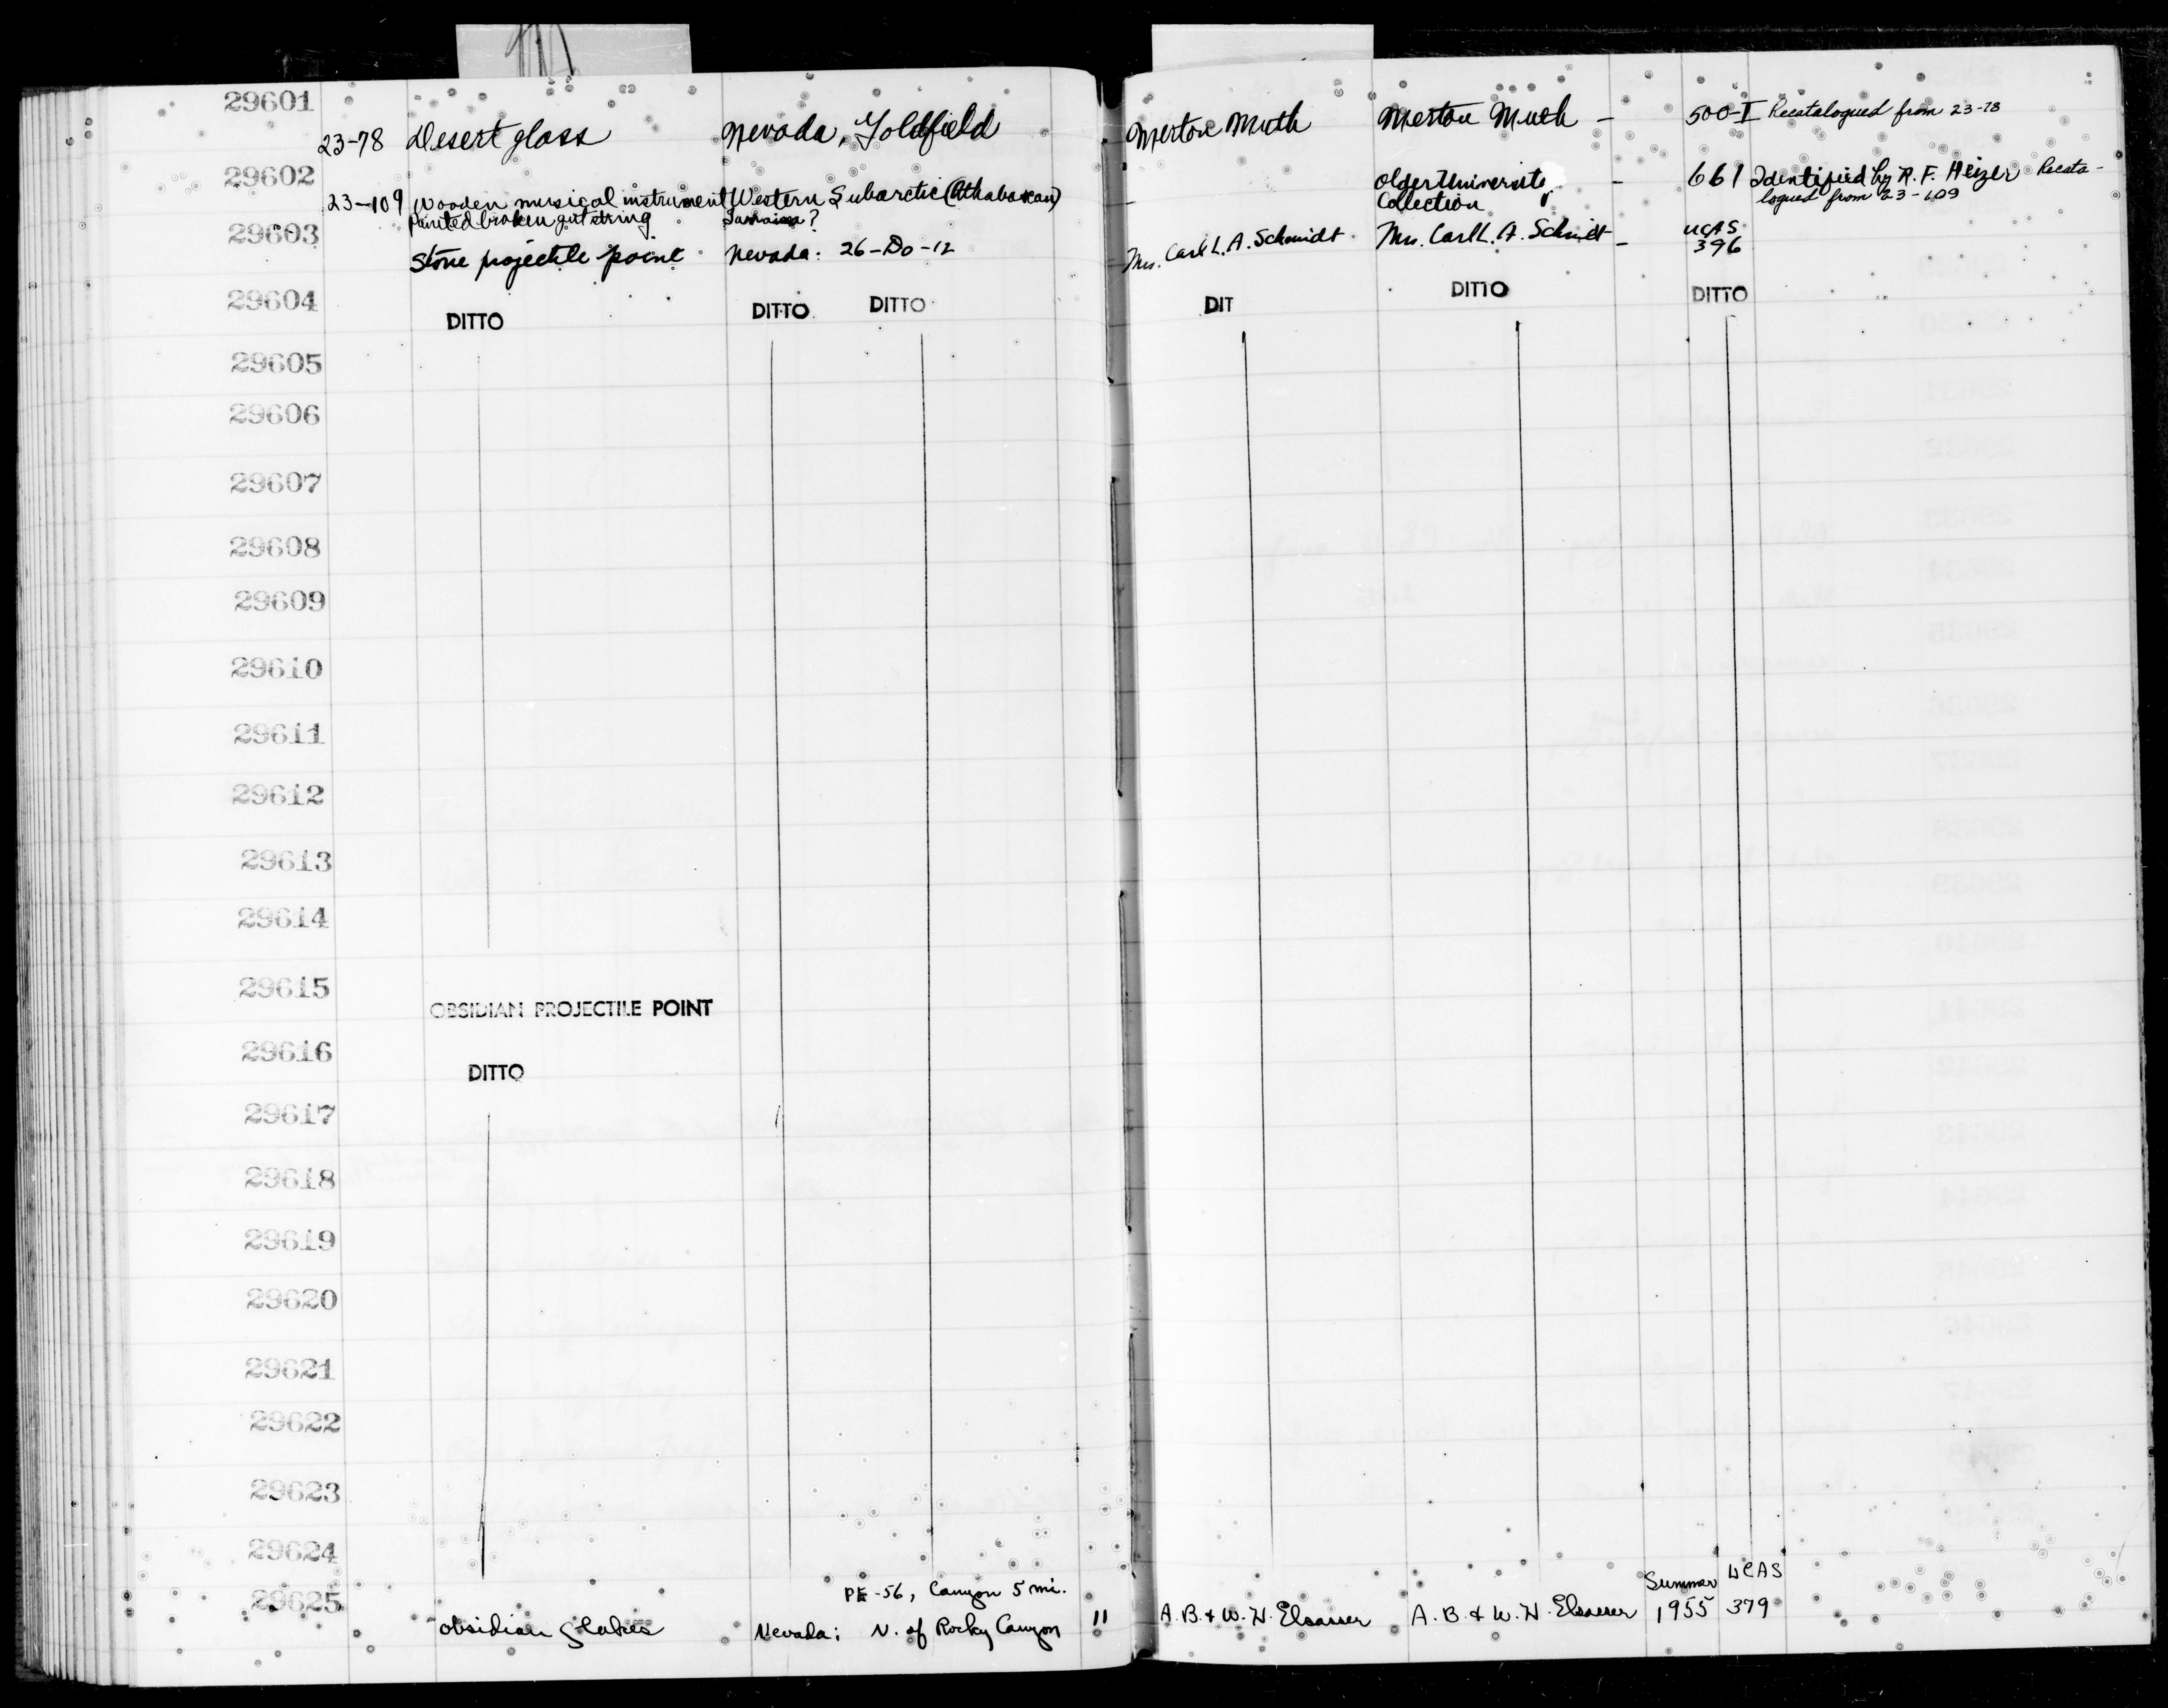 29601
23-78 Desert glass Nevada, Goldfield Merton Muth Merton Muth - 500-I Recatalogued from 23-78
29602
23-109 Wooden musical instrument Western Subarctic (Athabascan) - Older University - 661 Identified by R. F. Heizer Recata-
Painted broken gut string Jamaica? Collection logued from 23-109
29603
Stone projectile point Nevada: 26-Do-12 Mrs. Carl L. A. Schmidt Mrs. Carl L. A. Schmidt - UCAS
396
29604
DITTO DITTO DITTO DIT DITTO DITTO
29605
29606
29607
29608
29609
29610
29611
29612
29613
29614
29615
OBSIDIAN PROJECTILE POINT
29616
DITTO
29617
29618
29619
29620
29621
29622
29623
29624
29625
PE-56, Canyon 5 mi. Summer UCAS
Obsidian flakes Nevada; N. of Rocky Canyon 11 A. B. & W. H. Elsasser A. B. & W. H. Elsasser 1955 379